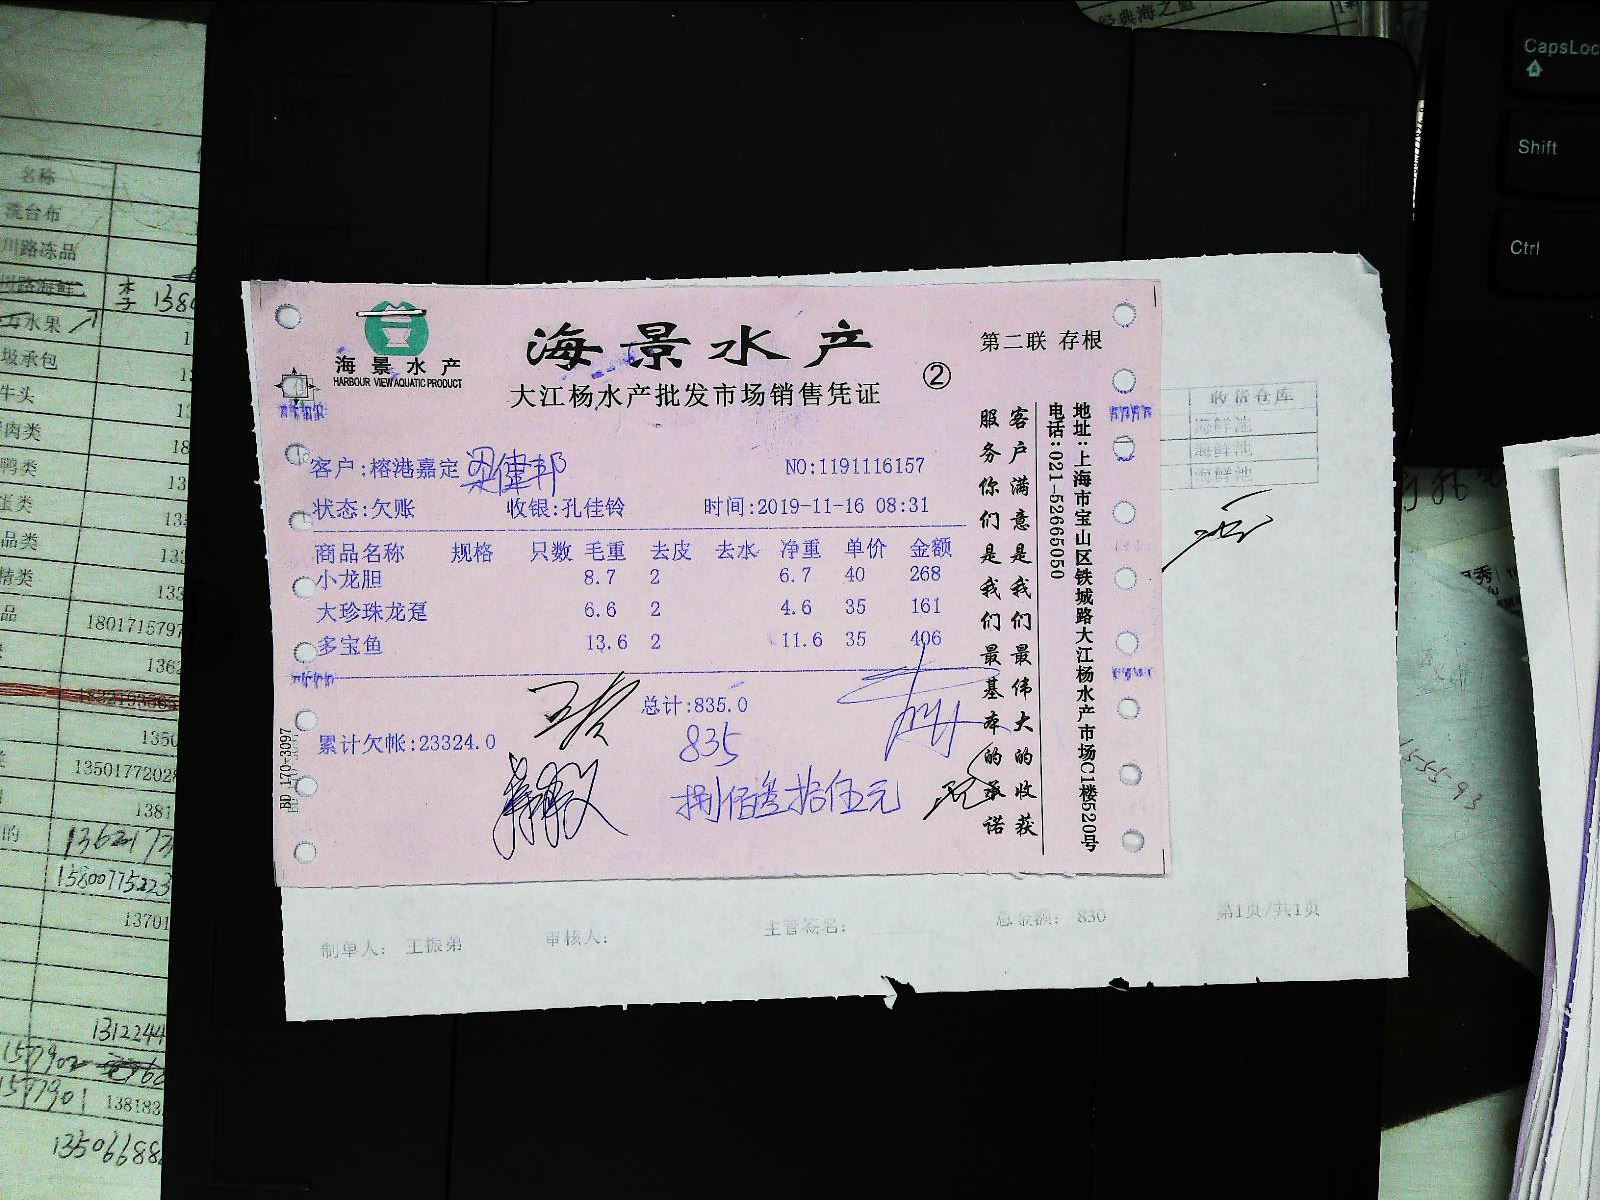 经典海之蓝
CapsLoc
Shift
Ctrl
名称
洗台布
川路冻品
川路海鲜
水果
圾承包
牛头
肉类
鸭类
蛋类
品类
精类
品
1801715797
13501772028
1362173
15800775223
13701
1312244
157902
157901
138183
13506688
海景水产
HARBOUR VIEW AQUATIC PRODUCT
海景水产
大江杨水产批发市场销售凭证
②
第二联 存根
客户:榕港嘉定 梁健邦
NO:1191116157
状态:欠账 收银:孔佳铃 时间:2019-11-16 08:31
商品名称 规格 只数 毛重 去皮 去水 净重 单价 金额
小龙胆 8.7 2 6.7 40 268
大珍珠龙趸 6.6 2 4.6 35 161
多宝鱼 13.6 2 11.6 35 406
总计:835.0
累计欠帐:23324.0
835
捌佰叁拾伍元
BD 170-3097
客户满意是我们最伟大的收获
服务你们是我们最基本的承诺
地址:上海市宝山区铁城路大江杨水产市场C1楼520号
电话:021-52665050
收货仓库
海鲜池
海鲜池
海鲜池
制单人: 王振弟 审核人: 主管签名: 总金额: 830 第1页/共1页